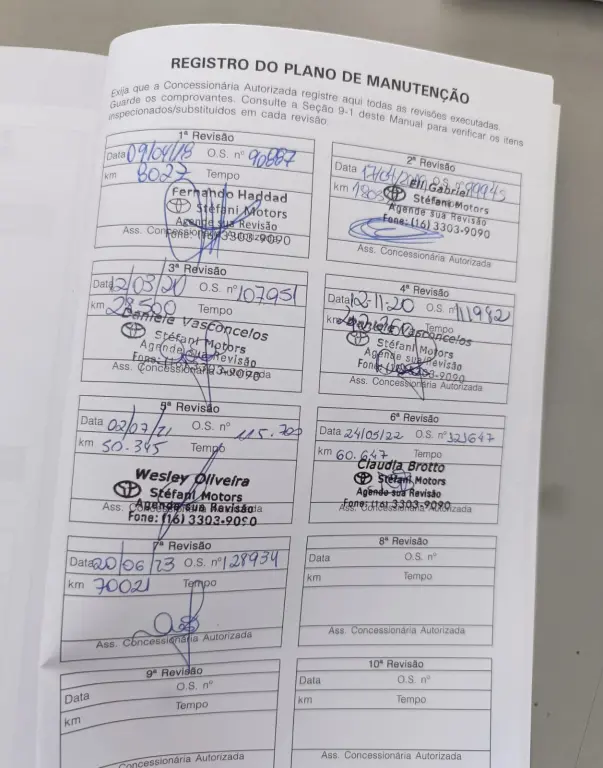 REGISTRO DO PLANO DE MANUTENÇÃO
Exija que a Concessionária Autorizada registre aqui todas as revisões executadas.
Guarde os comprovantes. Consulte a Seção 9-1 deste Manual para verificar os itens
inspecionados/substituídos em cada revisão.
1ª Revisão
Data 09/04/18 O.S. nº 90887
km 8027 Tempo
Fernando Haddad
Stéfani Motors
Agende sua Revisão
Fone: (16) 3303-9090
Ass. Concessionária Autorizada
2ª Revisão
Data O.S. nº 99943
km
Eli Gabriel
Stéfani Motors
Agende sua Revisão
Fone: (16) 3303-9090
Ass. Concessionária Autorizada
3ª Revisão
Data 12/03/20 O.S. nº 107951
km 28.560 Tempo
Daniele Vasconcelos
Stéfani Motors
Agende sua Revisão
Fone: (16) 3303-9090
Ass. Concessionária Autorizada
4ª Revisão
Data 12-11-20 O.S. nº 111992
km Tempo
Daniele Vasconcelos
Stéfani Motors
Agende sua Revisão
Fone: (16) 3303-9090
Ass. Concessionária Autorizada
5ª Revisão
Data 02/07/21 O.S. nº 115.700
km 50.345 Tempo
Wesley Oliveira
Stéfani Motors
Agende sua Revisão
Fone: (16) 3303-9090
Ass. Concessionária Autorizada
6ª Revisão
Data 24/05/22 O.S. nº 121647
km 60.647 Tempo
Claudia Brotto
Stéfani Motors
Agende sua Revisão
Fone: (16) 3303-9090
Ass. Concessionária Autorizada
7ª Revisão
Data 20/06/23 O.S. nº 128934
km 70021 Tempo
Ass. Concessionária Autorizada
8ª Revisão
Data O.S. nº
km Tempo
Ass. Concessionária Autorizada
9ª Revisão
Data O.S. nº
km Tempo
Concessionária Autorizada
10ª Revisão
Data O.S. nº
km Tempo
Ass. Concessionária Autorizada